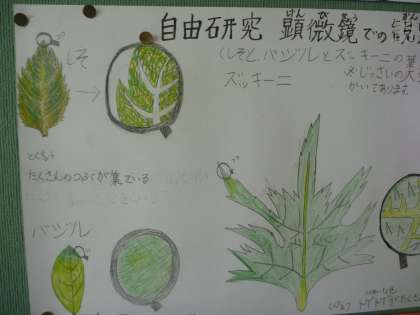 自由研究 顕微鏡での
(しそと、バジルとズッキーニの葉
ズッキーニ
かいてあります
しそ
とくちょう
たくさんのつぶが集ている
バジル
とくちょう トゲトゲがたくさん